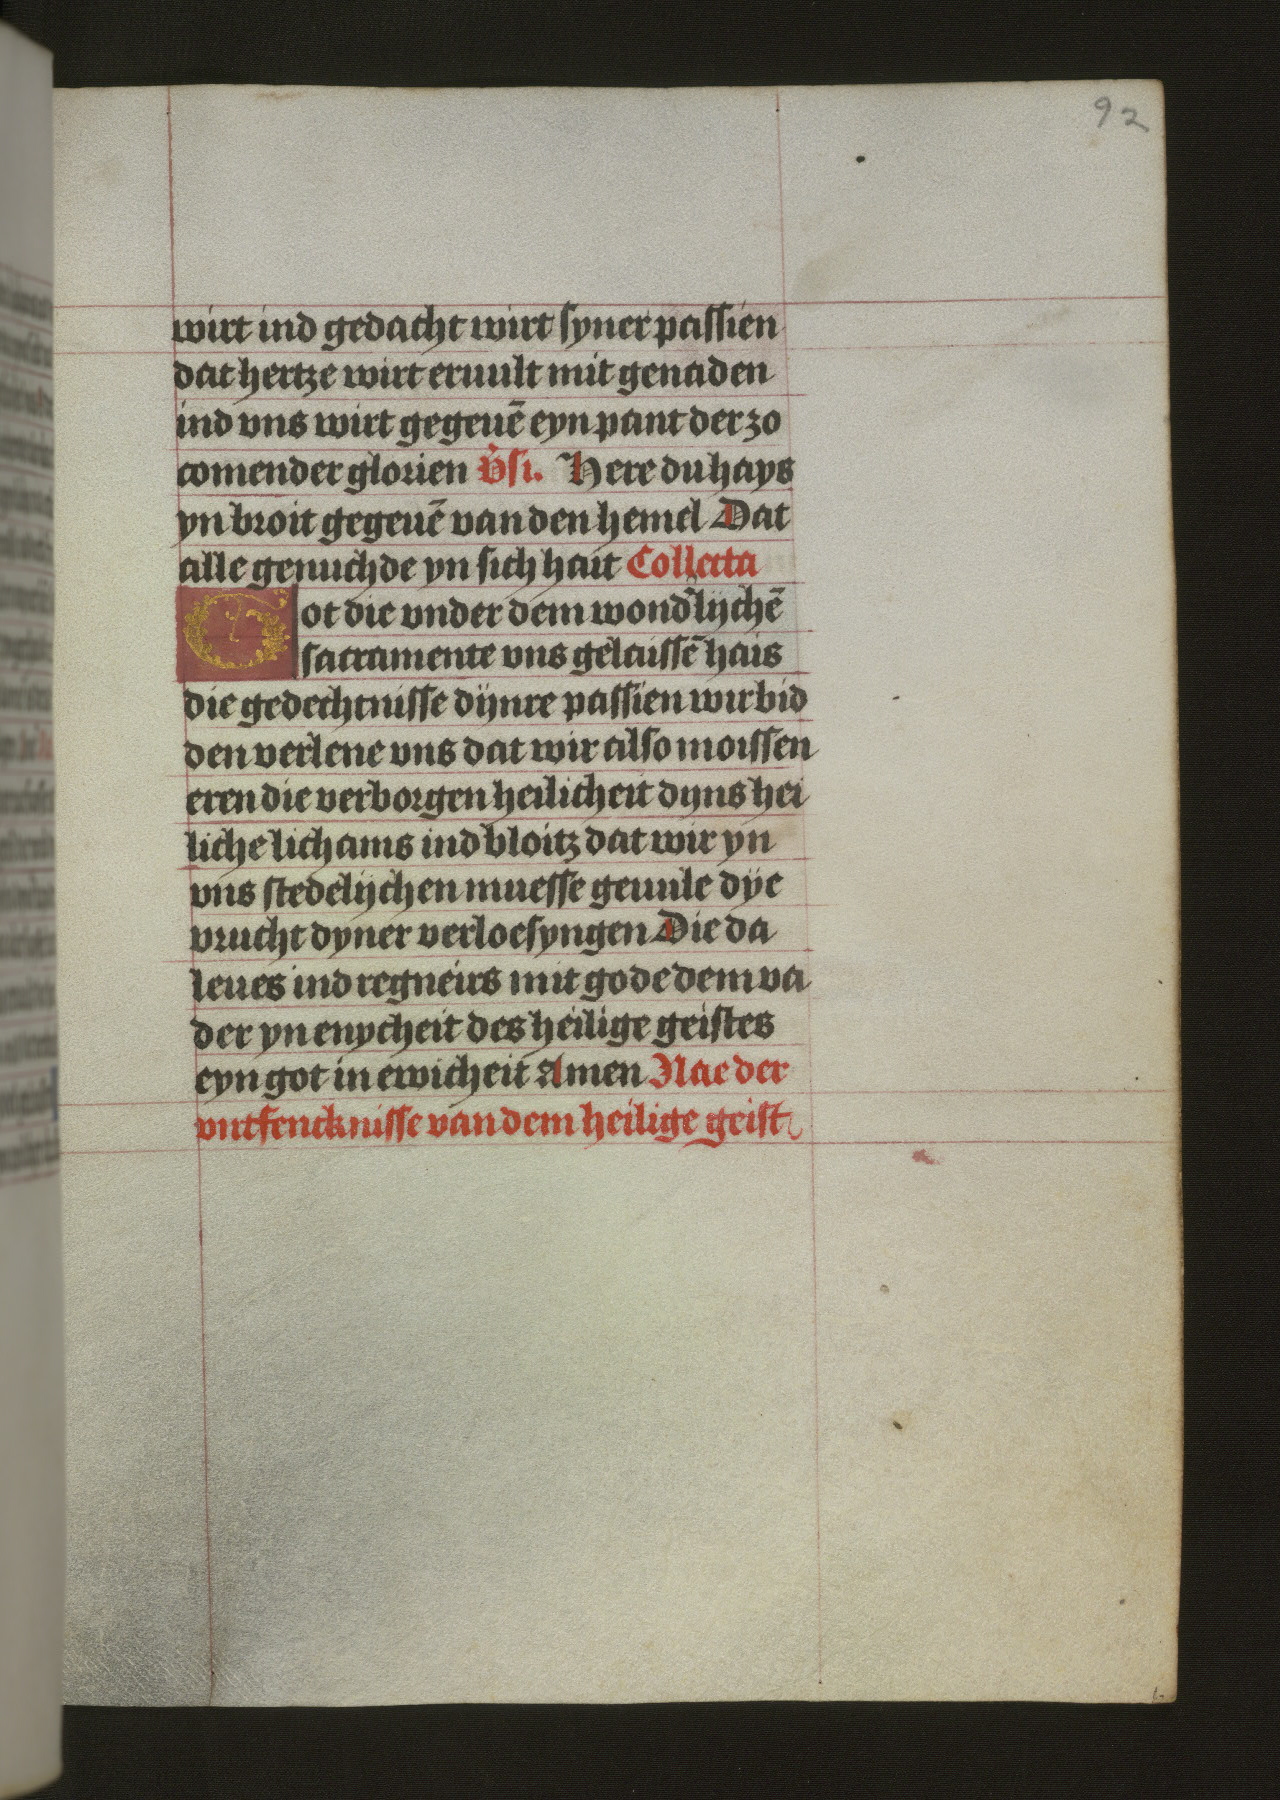 92
wirt ind gedacht wirt syner passien
dat hertze wirt eruult mit genaden
ind vns wirt gegeuē eyn pant der zo
comender glorien v̉si. Here du hays
yn broit gegeuē van den hemel Dat
alle genuchde yn sich hait Collecta
Got die vnder dem wond̉lijchē
sacramente vns gelaissē hais
die gedechtnisse dijnre passien wir bid
den verlene vns dat wir also moissen
eren die verborgen heilicheit dyns hei
liche lichams ind bloitz dat wir yn
vns stedelijchen muesse geuule dye
vrucht dyner verloesyngen Die da
leues ind regneirs mit gode dem va
der yn enycheit des heilige geistes
eyn got in ewicheit Amen Nae der
vntfencknisse van dem heilige geist